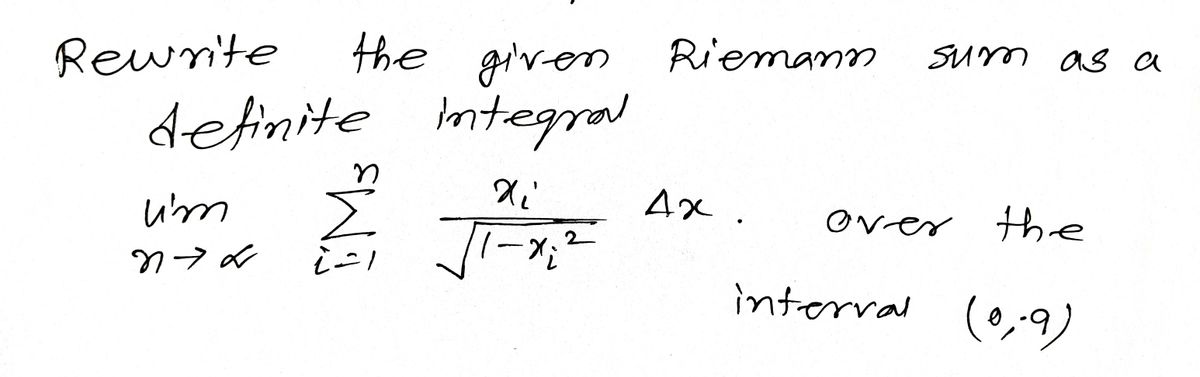 Rewrite the given Riemann sum as a
definite integral
lim n→∝ n Σ i=1 xᵢ / √1-xᵢ² Δx. over the
interval (0,.9)